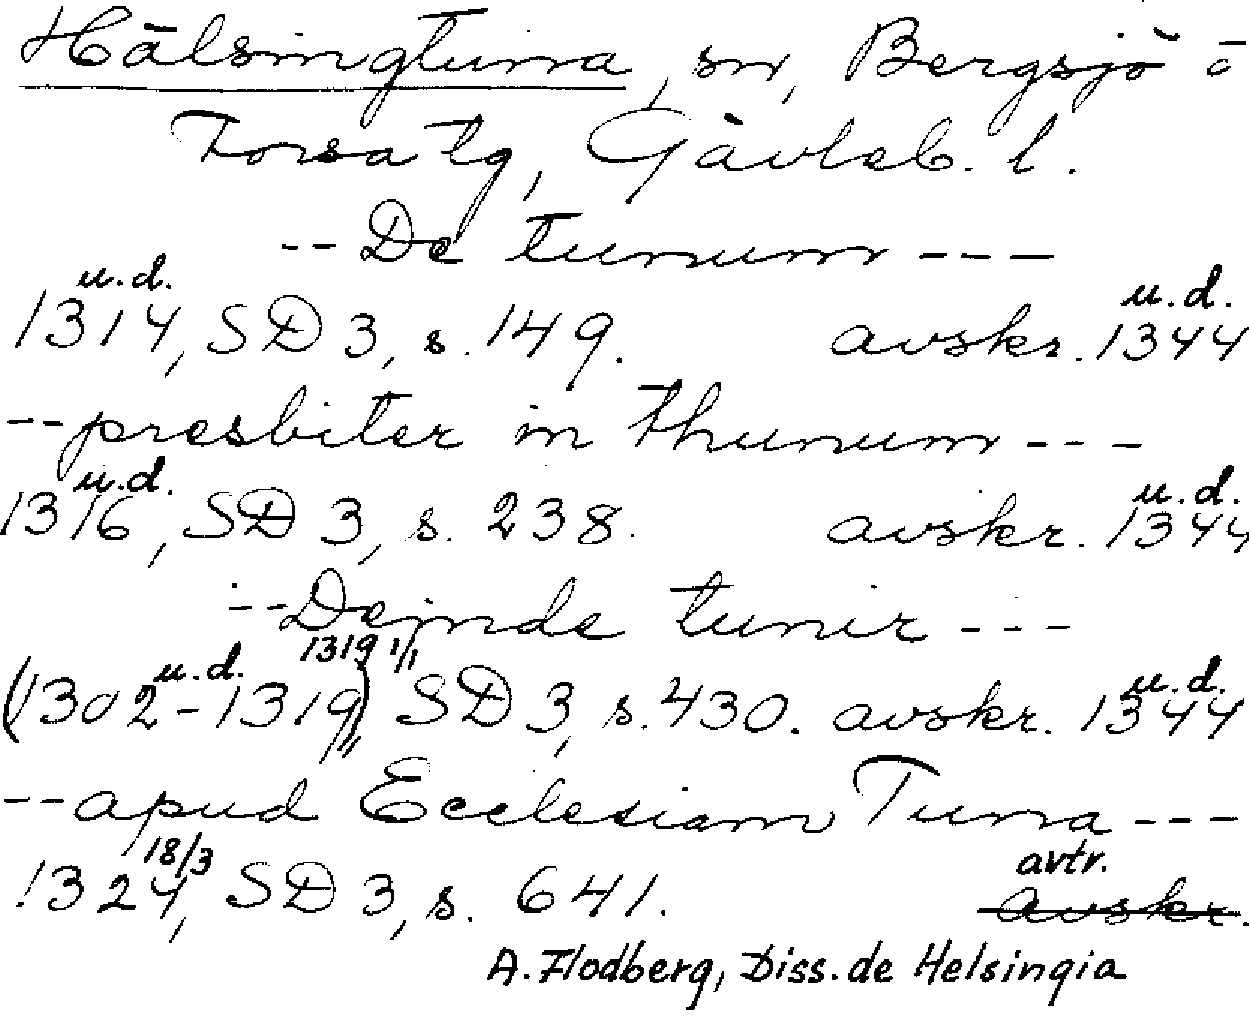 Hälsingtuna, sn, Bergsjö o
Forsa tg, Gävleb. l.
-- De tunum ---
u.d. u.d.
1314, SD 3, s. 149. avskr. 1344
-- presbiter in thunum ---
u.d. u.d.
1316, SD 3, s. 238. avskr. 1344
-- Deinde tunir ---
u.d. 1319 1/1 u.d.
(1302-1319) SD 3, s. 430. avskr. 1344
-- apud Ecclesiam Tuna ---
18/3 avtr.
1324, SD 3, s. 641. avskr.
A. Flodberg, Diss. de Helsingia